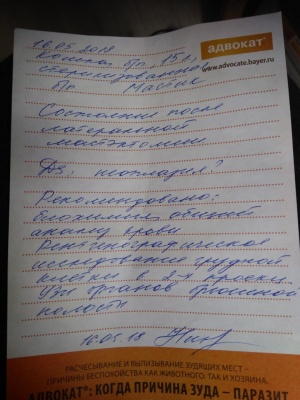 16.05.2018
адвокат®
www.advocate.bayer.ru
Кошка, 15 л,
стерилизованная
Состояние после
латеральной
мастэктомии
Дз: неоплазия?
Рекомендовано:
биохимия, общий
анализ крови
Рентгенографическое
исследование грудной
клетки в 2-х проекц.
Узи органов брюшной
полости
16.05.18
РАСЧЕСЫВАНИЕ И ВЫЛИЗЫВАНИЕ ЗУДЯЩИХ МЕСТ –
ПРИЧИНЫ БЕСПОКОЙСТВА КАК ЖИВОТНОГО, ТАК И ХОЗЯИНА.
АДВОКАТ®: КОГДА ПРИЧИНА ЗУДА – ПАРАЗИТ